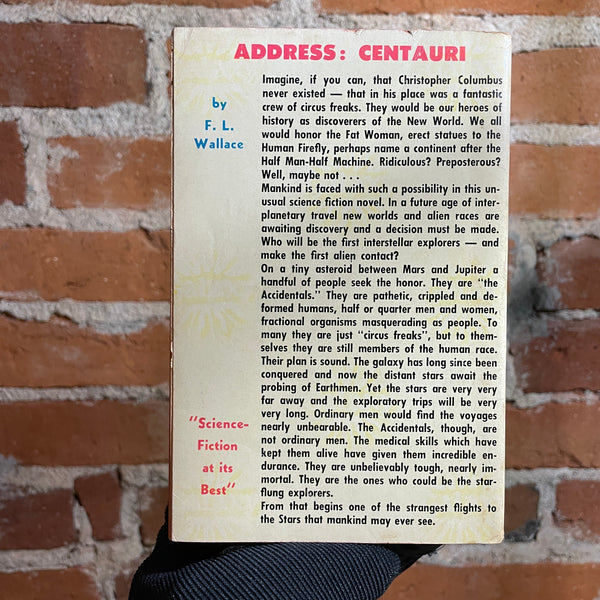 ADDRESS: CENTAURI
by
F. L.
Wallace
Imagine, if you can, that Christopher Columbus
never existed — that in his place was a fantastic
crew of circus freaks. They would be our heroes of
history as discoverers of the New World. We all
would honor the Fat Woman, erect statues to the
Human Firefly, perhaps name a continent after the
Half Man-Half Machine. Ridiculous? Preposterous?
Well, maybe not . . .
Mankind is faced with such a possibility in this un-
usual science fiction novel. In a future age of inter-
planetary travel new worlds and alien races are
awaiting discovery and a decision must be made.
Who will be the first interstellar explorers — and
make the first alien contact?
On a tiny asteroid between Mars and Jupiter a
handful of people seek the honor. They are "the
Accidentals." They are pathetic, crippled and de-
formed humans, half or quarter men and women,
fractional organisms masquerading as people. To
many they are just "circus freaks", but to them-
selves they are still members of the human race.
Their plan is sound. The galaxy has long since been
conquered and now the distant stars await the
probing of Earthmen. Yet the stars are very very
far away and the exploratory trips will be very
very long. Ordinary men would find the voyages
nearly unbearable. The Accidentals, though, are
not ordinary men. The medical skills which have
kept them alive have given them incredible en-
durance. They are unbelievably tough, nearly im-
mortal. They are the ones who could be the star-
flung explorers.
From that begins one of the strangest flights to
the Stars that mankind may ever see.
"Science-
Fiction
at its
Best"